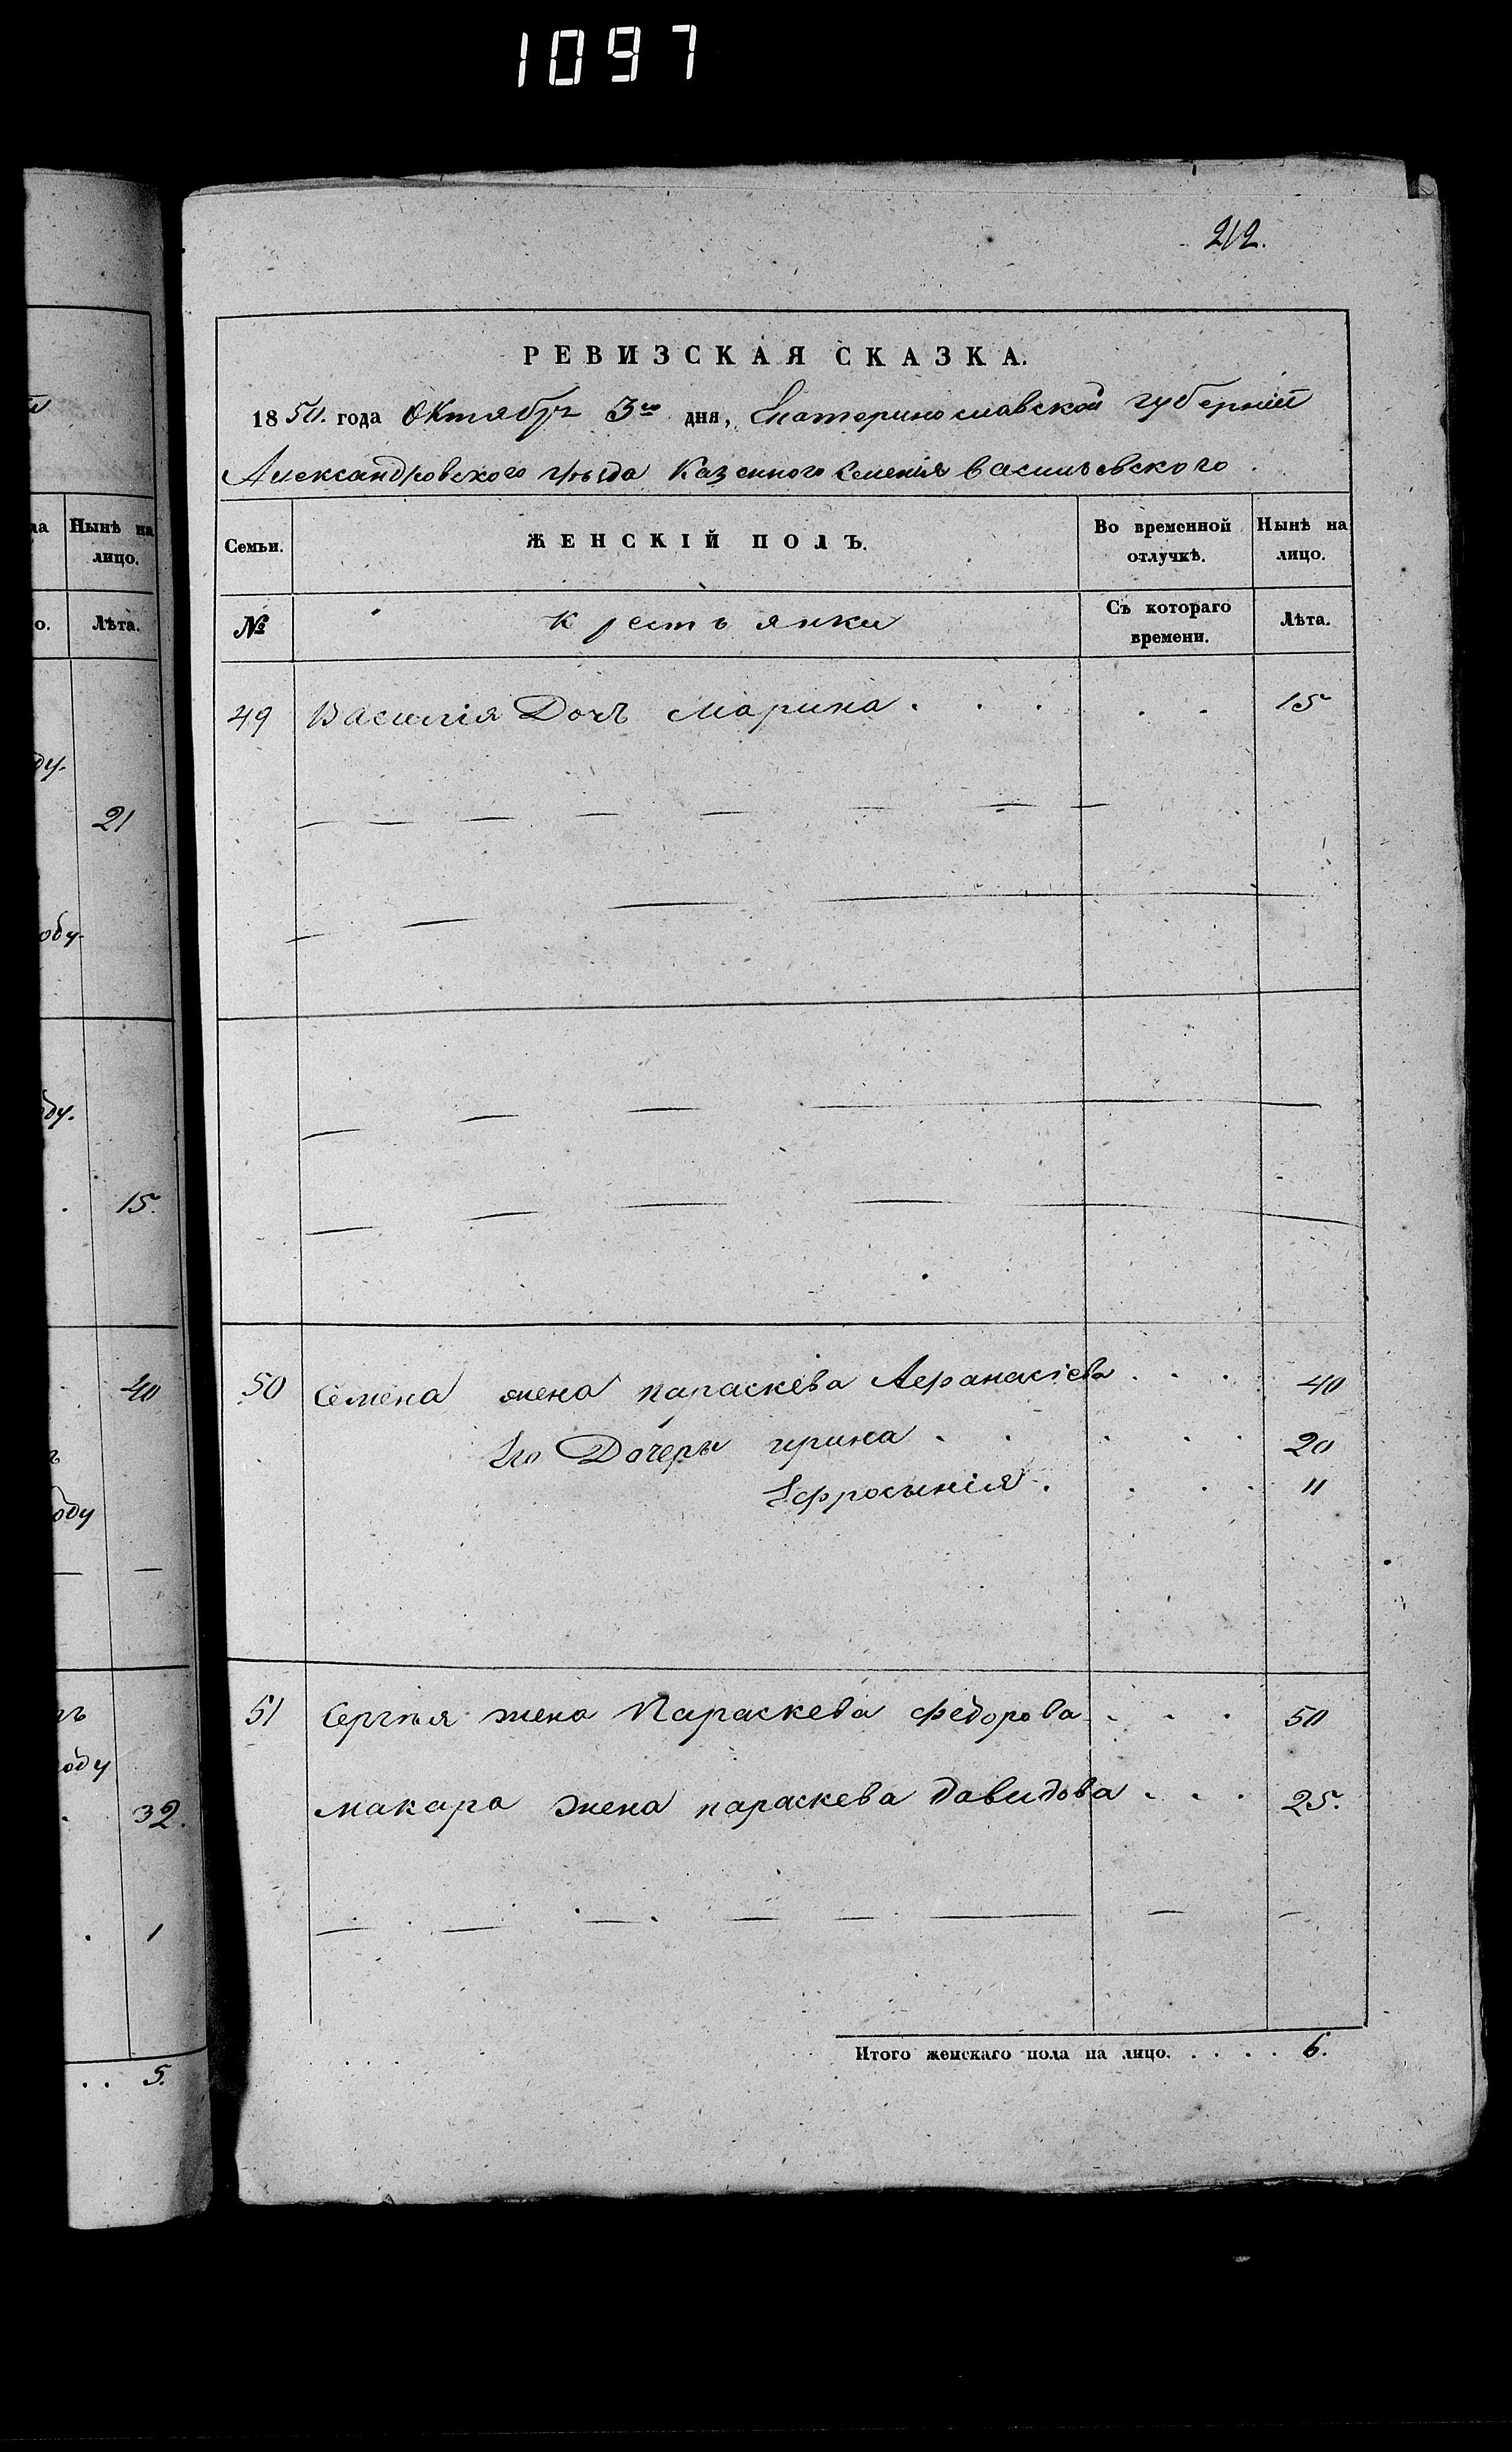 1097
212.
РЕВИЗСКАЯ СКАЗКА.
1850. года Октября 3го дня, Екатеринославской губернии
Александровского уезда Казенного Селения васильевского
Семьи. ЖЕНСКІЙ ПОЛЪ. Во временной отлучкѣ. Нынѣ на лицо.
№ крестьянки Съ котораго времени. Лѣта.
49 Василія Дочь Марина . . . . . 15
50 Семена жена параскева Аефанасіева . . . 40
Его Дочери ирина . . . . . 20
Ефросынія . . . . 11
51 Сергѣя жена Параскева федорова . . . 50
макара жена параскева давидова . . . 25.
Итого женскаго пола на лицо. . . . . 6.
Нынѣ на лицо.
Лѣта.
ду.
21
оду.
15.
40
оду
оду
32.
1
. . 5.